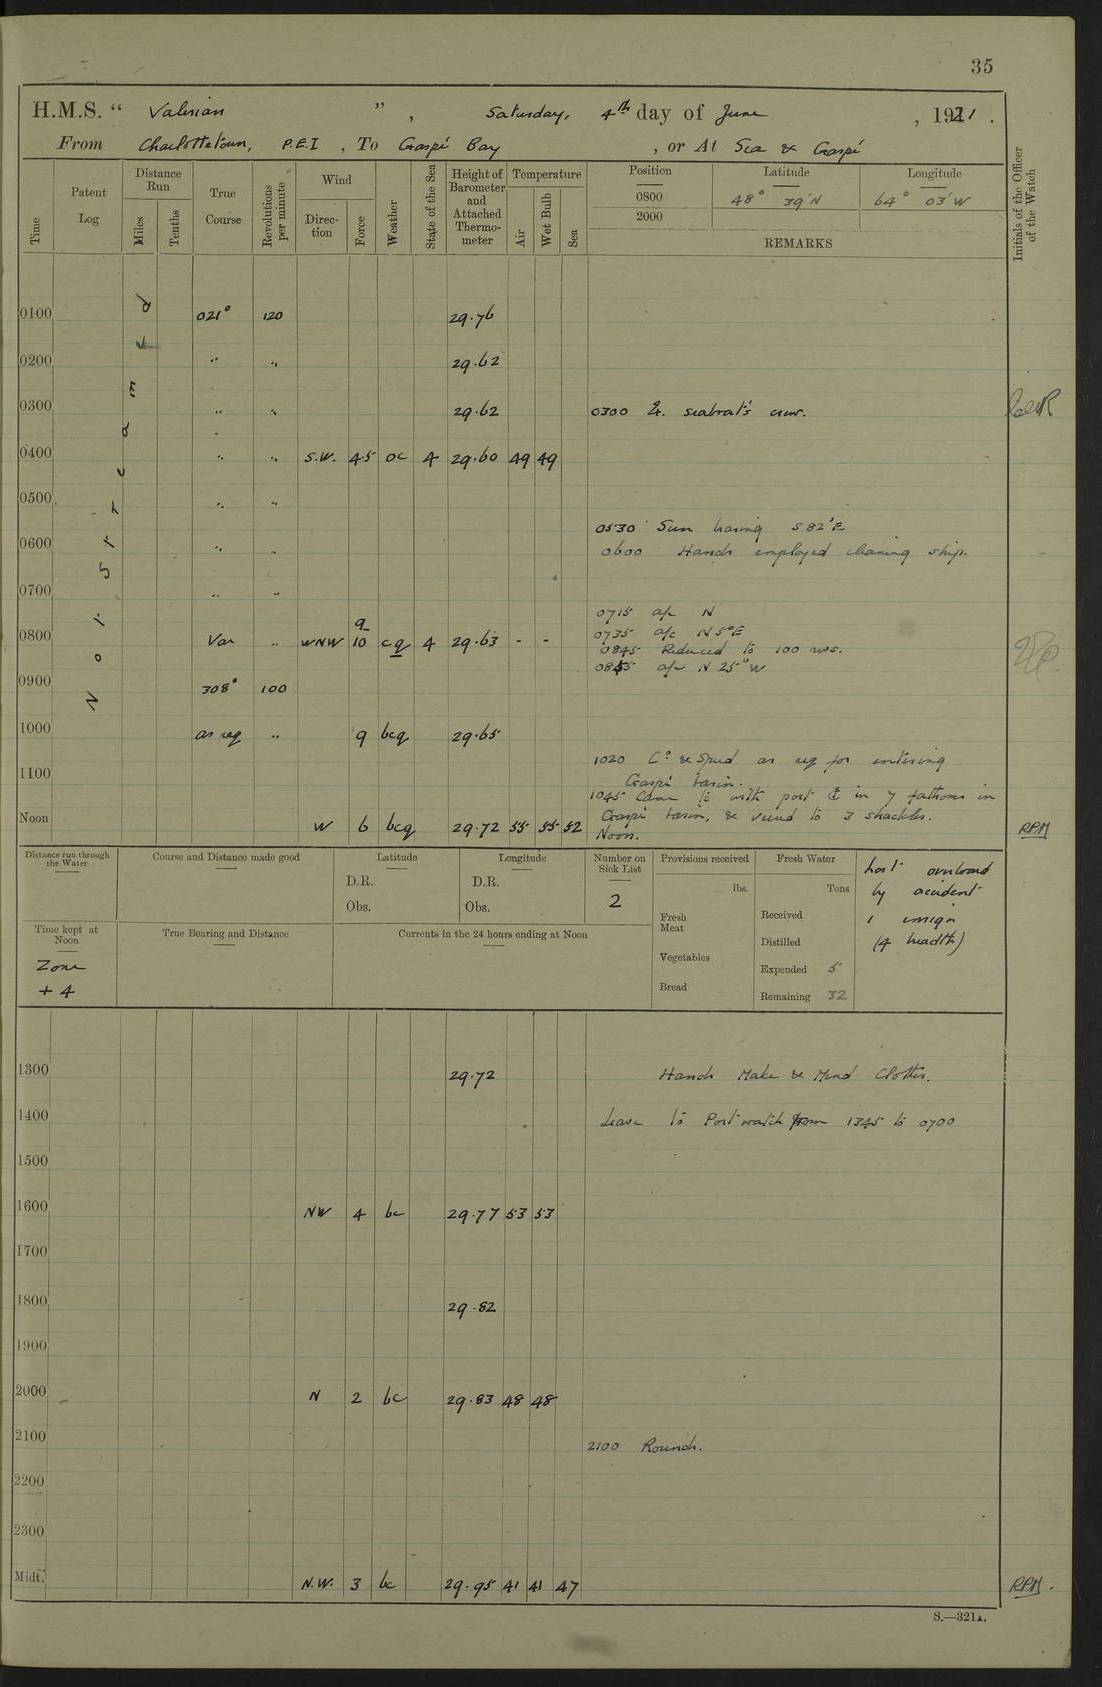 35
H.M.S. " Valerian ", Saturday, 4th day of June, 1921.
From Charlottetown, P.E.I, To Gaspé Bay, or At Sea & Gaspé
Time
Patent Log
Distance Run
Miles
Tenths
True Course
Revolutions per minute
Wind
Direction
Force
Weather
State of the Sea
Height of Barometer and Attached Thermometer
Temperature
Air
Wet Bulb
Sea
Position Latitude Longitude
0800 48° 39' N 64° 03' W
2000
REMARKS
Initials of the Officer of the Watch
Not streamed
0100 021° 120 29.76
0200 " " 29.62
0300 " " 29.62 0300
0400 " " S.W. 4.5 oc 4 29.60 49 49
0500 " "
0530 Sun bearing S 82° E
0600 " " 0600 Hands employed cleaning ship.
0700 " "
0715 a/c N
0735 a/c N 5° E
0800 Var " WNW 9 10 cq 4 29.63 - -
0845 Reduced to 100 revs.
0855 a/c N 25° W
0900 308° 100
1000 as req " 9 bcq 29.65
1020 Co & Speed as req for entering
Gaspé basin.
1100
1045 Came to with port ⚓ in 7 fathoms in
Gaspé basin, & veered to 3 shackles.
Noon W 6 bcq 29.72 55 55 52 Noon. RPM
Distance run through the Water
Course and Distance made good
Latitude
D.R.
Obs.
Longitude
D.R.
Obs.
Number on Sick List
2
Provisions received
lbs.
Fresh Meat
Vegetables
Bread
Fresh Water
Tons
Received
Distilled
Expended 5
Remaining 32
Lost overboard
by accident
1 ensign
(4 breadth)
Time kept at Noon
Zone
+ 4
True Bearing and Distance
Currents in the 24 hours ending at Noon
1300 29.72 Hands Make & Mend Clothes.
1400 Leave to Port watch from 1345 to 0700
1500
1600 NW 4 bc 29.77 53 53
1700
1800 29.82
1900
2000 N 2 bc 29.83 48 48
2100 2100 Rounds.
2200
2300
Midt. N.W. 3 bc 29.95 41 41 47 RPM.
S.—321A.